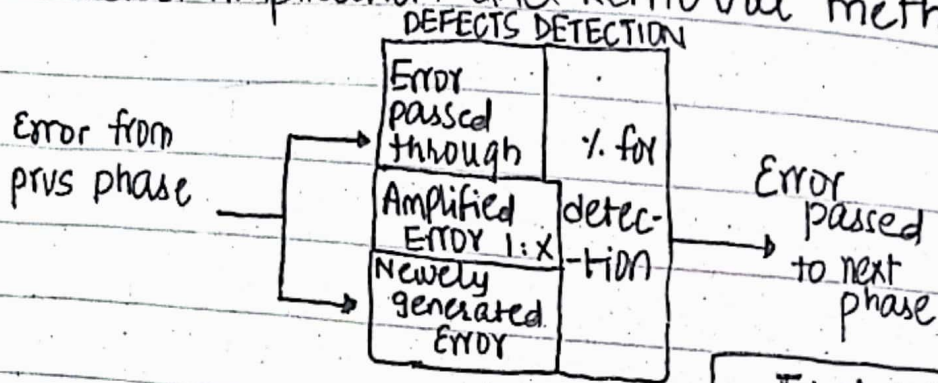 Amplification and Removal meth
DEFECTS DETECTION
Error from
prvs phase
Error
passed
through
Amplified
Error 1:X
Newely
generated
Error
% for
detec-
-tion
Error
passed
to next
phase